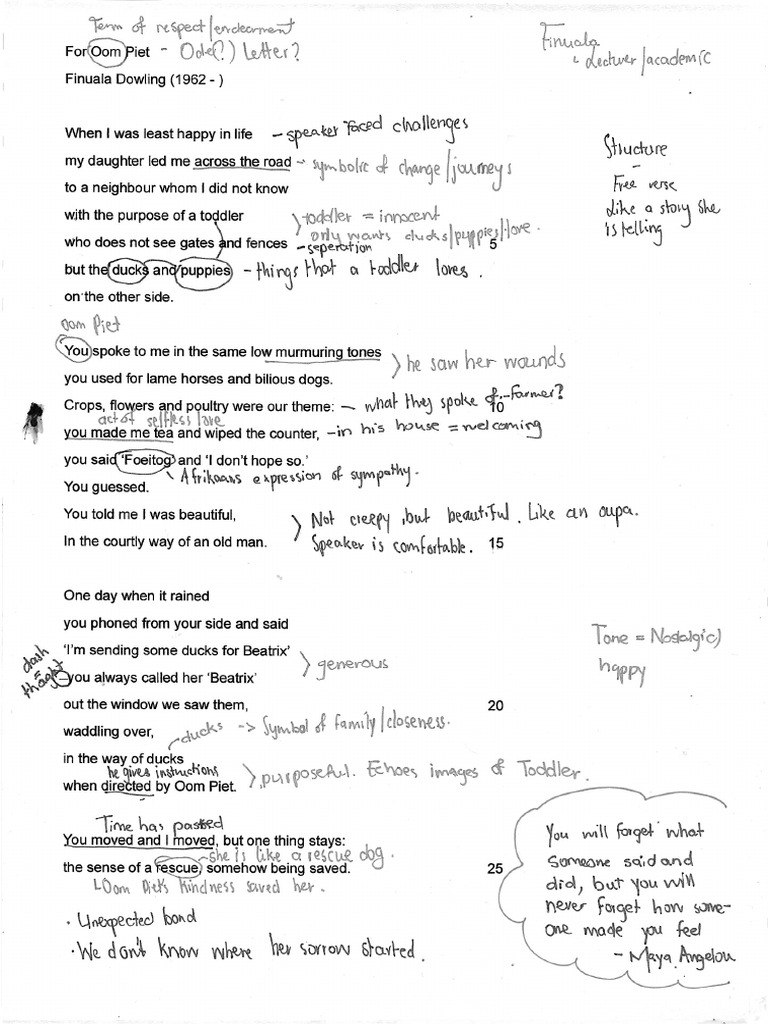 Term of respect/endearment
For Oom Piet - Ode(?) Letter?
Finuala
↳ Lecturer/academic
Finuala Dowling (1962 - )
When I was least happy in life - speaker faced challenges
my daughter led me across the road - symbolic of change/journeys
to a neighbour whom I did not know
with the purpose of a toddler
toddler = innocent
only wants ducks/puppies/love.
who does not see gates and fences - seperation 5
but the ducks and puppies - things that a toddler loves.
on the other side.
Structure
-
Free verse
Like a story she
is telling
Oom Piet
You spoke to me in the same low murmuring tones
you used for lame horses and bilious dogs.
he saw her wounds
Crops, flowers and poultry were our theme: - what they spoke of. Farmer? 10
act of selfless love
you made me tea and wiped the counter, - in his house = welcoming
you said 'Foeitog' and 'I don't hope so.'
Afrikaans expression of sympathy.
You guessed.
You told me I was beautiful,
In the courtly way of an old man. 15
Not creepy, but beautiful. Like an oupa.
Speaker is comfortable.
One day when it rained
you phoned from your side and said
'I'm sending some ducks for Beatrix'
–you always called her 'Beatrix'
generous
dash
=
thought
out the window we saw them, 20
waddling over,
ducks -> Symbol of family/closeness.
in the way of ducks
he gives instructions
when directed by Oom Piet.
purposeful. Echoes images of Toddler.
Tone = Nostalgic)
happy
Time has passed
You moved and I moved, but one thing stays:
she is like a rescue dog.
the sense of a rescue, somehow being saved. 25
Oom Piet's kindness saved her.
• Unexpected bond
• We don't know where her sorrow started.
You will forget what
someone said and
did, but you will
never forget how some-
one made you feel
- Maya Angelou